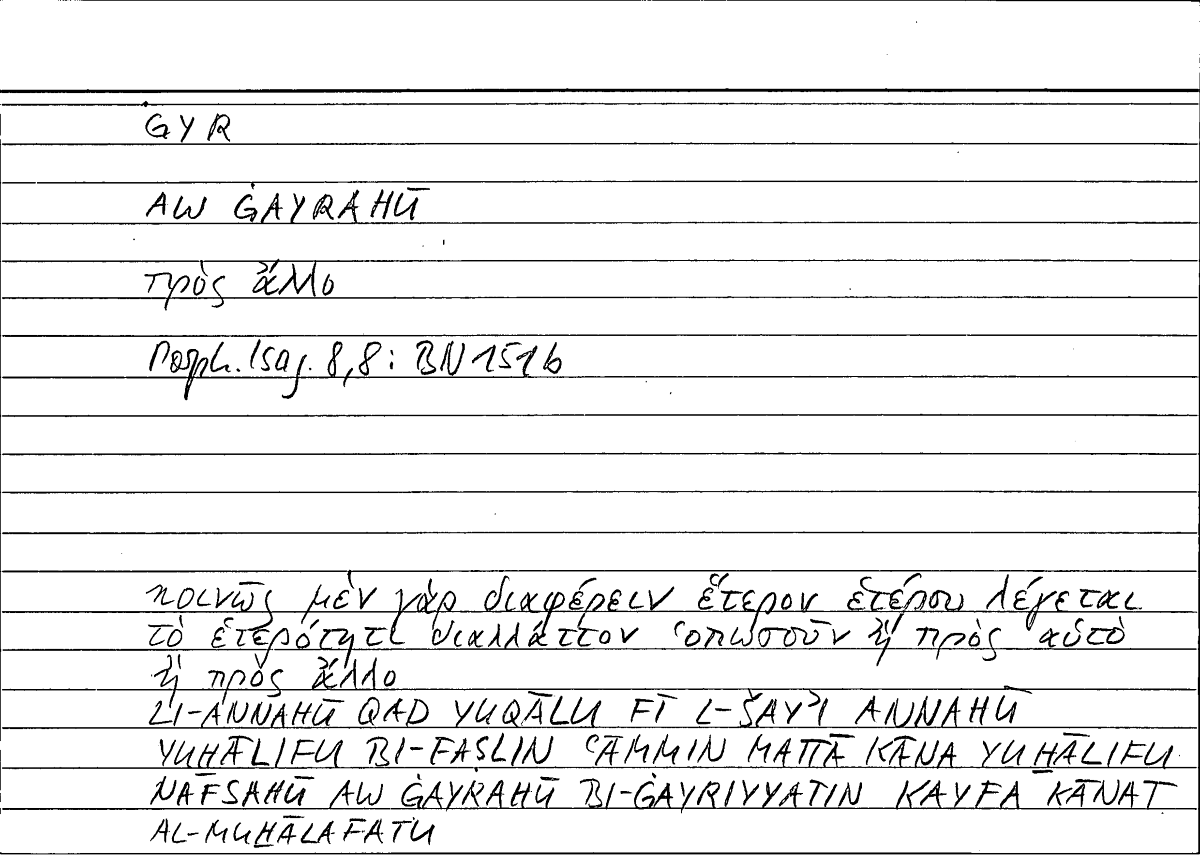 ĠYR
AW ĠAYRAHŪ
πρὸς ἄλλο
Porph. Isag. 8,8: BN 151b
κοινῶς μὲν γάρ διαφέρειν ἕτερον ἑτέρου λέγεται
τὸ ἑτερότητι διαλλάττον ὁπωσοῦν ἢ πρὸς αὑτὸ
ἢ πρὸς ἄλλο
LI-ANNAHŪ QAD YUQĀLU FĪ L-ŠAYʾI ANNAHŪ
YUḪĀLIFU BI-FAṢLIN ʿĀMMIN MATTĀ KĀNA YUḪĀLIFU
NAFSAHŪ AW ĠAYRAHŪ BI-ĠAYRIYYATIN KAYFA KĀNAT
AL-MUḪĀLAFATU